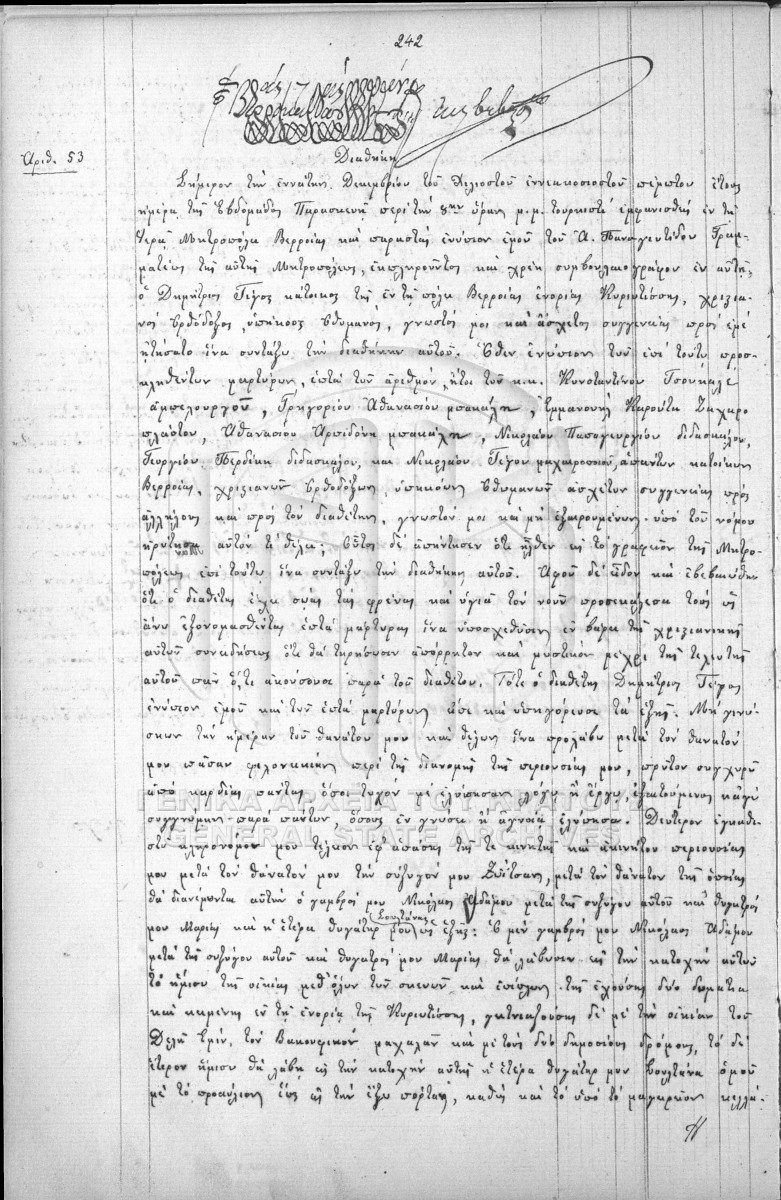 242
Ἀριθ. 53
Διαθήκη
Σήμερον τὴν ἐννάτην Δεκεμβρίου τοῦ χιλιοστοῦ ἐννεακοσιοστοῦ πέμπτου ἔτους
ἡμέρα τῆς ἑβδομάδος Παρασκευὴ περὶ τὴν 8ην ὥραν μ.μ. τουρκιστὶ ἐμφανισθεὶς ἐν τῇ
Ἱερᾷ Μητροπόλει Βερροίας καὶ παραστὰς ἐνώπιον ἐμοῦ τοῦ Α. Παναγιωτίδου Γραμ-
ματέως τῆς αὐτῆς Μητροπόλεως, ἐκπληροῦντος καὶ χρέη συμβολαιογράφου ἐν αὐτῇ,
ὁ Δημήτριος Γέγος κάτοικος τῆς ἐν τῇ πόλει Βερροίας ἐνορίας Κυριωτίσσης, χριστια-
νὸς ὀρθόδοξος, ὑπήκοος ὀθωμανός, γνωστός μοι καὶ ἄσχετος συγγενείας πρὸς ἐμὲ
ᾐτήσατο ἵνα συντάξω τὴν διαθήκην αὐτοῦ. Ὅθεν ἐνώπιον τῶν ἐπὶ τούτῳ προσ-
κληθέντων μαρτύρων, ἑπτὰ τὸν ἀριθμόν, ἤτοι τῶν κ.κ. Κωνσταντίνου Τσουκαλᾶ
ἀμπελουργοῦ, Γρηγορίου Ἀθανασίου μπακάλη, Ἐμμανουὴλ Καρούτα Ζαχαρο
πλάστου, Ἀθανασίου μπακάλη, Νικολάου Παπαγεωργίου διδασκάλου,
Γεωργίου Βερδίκη διδασκάλου, καὶ Νικολάου Γέγου μαχαιροποιοῦ, ἁπάντων κατοίκων
Βερροίας, χριστιανῶν ὀρθοδόξων, ὑπηκόων ὀθωμανῶν ἀσχέτων συγγενείας πρὸς
ἀλλήλους καὶ πρὸς τὸν διαθέτην, γνωστῶν μοι καὶ μὴ ἐξαιρουμένων ὑπὸ τοῦ νόμου
ἠρώτησα αὐτὸν τί θέλει; Οὗτος δὲ ἀπήντησεν ὅτι ἦλθεν εἰς τὸ γραφεῖον τῆς Μητρο-
πόλεως ἐπὶ τούτῳ ἵνα συντάξω τὴν διαθήκην αὐτοῦ. Ἀφοῦ δὲ εἶδον καὶ ἐβεβαιώθην
ὅτι ὁ διαθέτης ἔχει σώας τὰς φρένας καὶ ὑγιᾶ τὸν νοῦν προσεκάλεσα τοὺς ὡς
ἄνω ἐξονομασθέντας ἑπτὰ μάρτυρας ἵνα ὑποσχεθῶσιν ἐν βάρει τῆς χριστιανικῆς
αὐτῶν συνειδήσεως ὅτι θὰ τηρήσωσιν ἀπόρρητον καὶ μυστικὸν μέχρι τῆς τελευτῆς
αὐτοῦ πᾶν ὅ,τι ἀκούσουσι παρὰ τοῦ διαθέτου. Τότε ὁ διαθέτης Δημήτριος Γέγος
ἐνώπιον ἐμοῦ καὶ τῶν ἑπτὰ μαρτύρων εἶπε καὶ ὑπηγόρευσε τὰ ἑξῆς. Μὴ γινώ-
σκων τὴν ἡμέραν τοῦ θανάτου μου καὶ θέλων ἵνα προλάβω μετὰ τὸν θάνατόν
μου πᾶσαν φιλονικίαν περὶ τῆς διανομῆς τῆς περιουσίας μου, πρῶτον συγχωρῶ
ἀπὸ καρδίας πάντας ὅσοι τυχὸν μὲ ἐλύπησαν λόγῳ ἢ ἔργῳ, ἐξαιτούμενος κἀγὼ
συγγνώμην παρὰ πάντων, ὅσους ἐν γνώσει ἢ ἀγνοίᾳ ἐλύπησα. Δεύτερον ἐγκαθι-
στῶ κληρονόμον μου τέλειον ἐφ' ἁπάσης τῆς τε κινητῆς καὶ ἀκινήτου περιουσίας
μου μετὰ τὸν θάνατόν μου τὴν σύζυγόν μου Ζωΐτσαν, μετὰ τὸν θάνατον τῆς ὁποίας
θὰ διανέμωνται αὐτὴν ὁ γαμβρός μου Νικόλαος Ἀδάμου μετὰ τῆς συζύγου αὐτοῦ καὶ θυγατρός
μου Μαρίας καὶ ἡ ἑτέρα θυγάτηρ μου Σουλτάνα ὡς ἑξῆς: Ὁ μὲν γαμβρός μου Νικόλαος Ἀδάμου
μετὰ τῆς συζύγου αὐτοῦ καὶ θυγατρός μου Μαρίας θὰ λάβωσιν εἰς τὴν κατοχὴν αὐτῶν
τὸ ἥμισυ τῆς οἰκίας μεθ' ὅλων τῶν σκευῶν καὶ ἐπίπλων τῆς ἐχούσης δύο δωμάτια
καὶ κειμένης ἐν τῇ ἐνορίᾳ τῆς Κυριωτίσσης, γειτνιαζούσης δὲ μὲ τὴν οἰκίαν τοῦ
Δελῆ Ἐμίν, τὸν Βακουφικὸν μαχαλᾶν καὶ μὲ τοὺς δύο δημοσίους δρόμους, τὸ δὲ
ἕτερον ἥμισυ θὰ λάβῃ εἰς τὴν κατοχὴν αὐτῆς ἡ ἑτέρα θυγάτηρ μου Σουλτάνα ὁμοῦ
μὲ τὸ προαύλιον ἕως εἰς τὴν ἔξω πόρταν, καθὼς καὶ τὸ ὑπὸ τὸ μαγειρεῖον κελλά-
ΓΕΝΙΚΑ ΑΡΧΕΙΑ ΤΟΥ ΚΡΑΤΟΥΣ
GENERAL STATE ARCHIVES